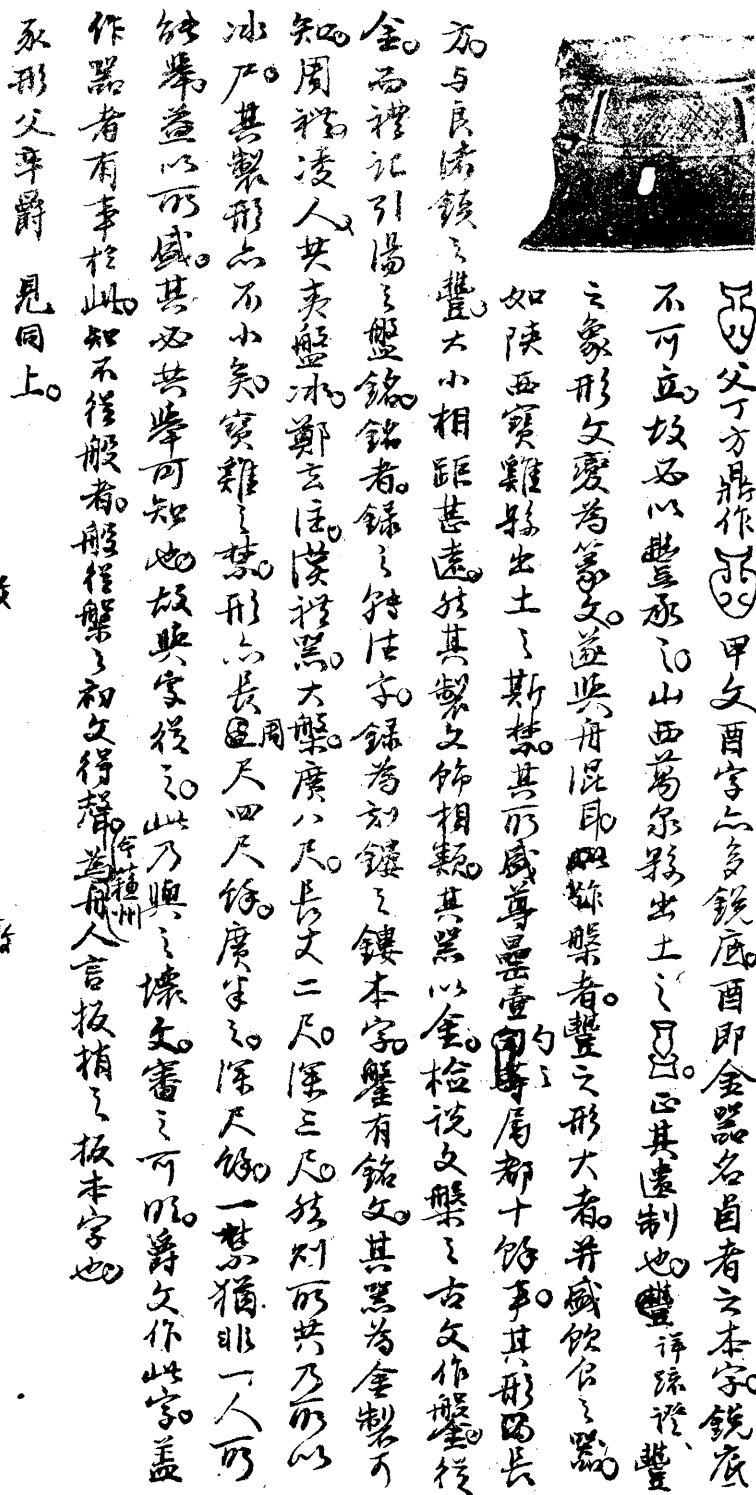 父丁方鼎作 甲文酉字亦多銳底。酉即金器名卣者之本字。銳底
不可立。故必以豐承之。山西萬泉縣出土之 。正其遺制也。豐詳疏證、豐
之象形文變為篆文。遂與舟混耳。 槃者。豐之形大者。并盛飲食之器。
如陝西寶雞縣出土之斯禁。其所盛尊罍壺勺之屬都十餘事。其形 長
方。与良渚鎮之豐。大小相距甚遠。然其製文飾相類。其器以金。檢說文槃之古文作鎜。從
金。而禮記引湯之盤銘。銘者。錄之轉注字。錄為刻鏤之鏤本字。鎜有銘文。其器為金製可
知。周禮凌人。共夷盤冰。鄭玄注。漢禮器。大槃。廣八尺。長丈二尺。深三尺。然則所共乃所以
冰尸。其製形亦不小矣。寶雞之禁。形亦長周尺四尺餘。廣半之。深尺餘。一禁猶非一人所
能舉。並以所盛。其必共舉可知也。故與字從之。此乃與之壞文。審之可明。爵文作此字。蓋
作器者有事於此。知不從般者。般從槃之初文得聲。為今蘇州船人言扳梢之扳本字也。
豕形父辛爵 見同上。